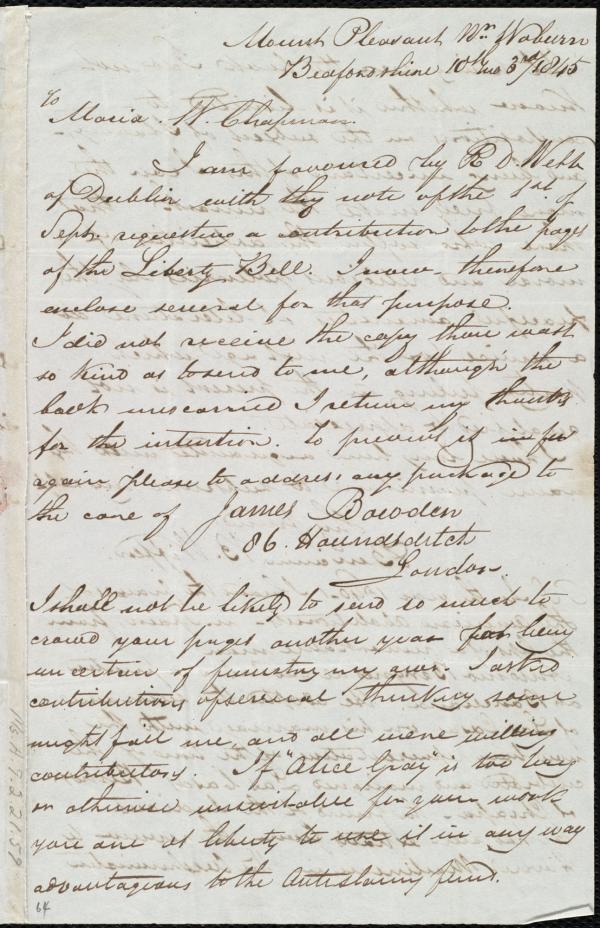 Mount Pleasant Nr. Woburn
Bedfordshire 10th mo 3rd/1845
To
Maria. W. Chapman.
I am favoured by R D Webb
of Dublin with thy note of the 1st. of
Septr. requesting a contribution to the pages
of the Liberty Bell. I now therefore
enclose several for that purpose.
I did not receive the copy thou wast
so kind as to send to me, although the
book miscarried I return my thanks
for the intention. To prevent it
again please to address any package to
the care of James Bowden
86. Houndsditch
London.
I shall not be likely to send so much to
crowd your pages another year being
uncertain of I asked
contributions of several thinking some
might fail me, and all were willing
contributors. If "Alice Gray" is too long
or otherwise unsuitable for your work
you are at liberty to use it in any way
advantageous to the Antislavery fund.
64